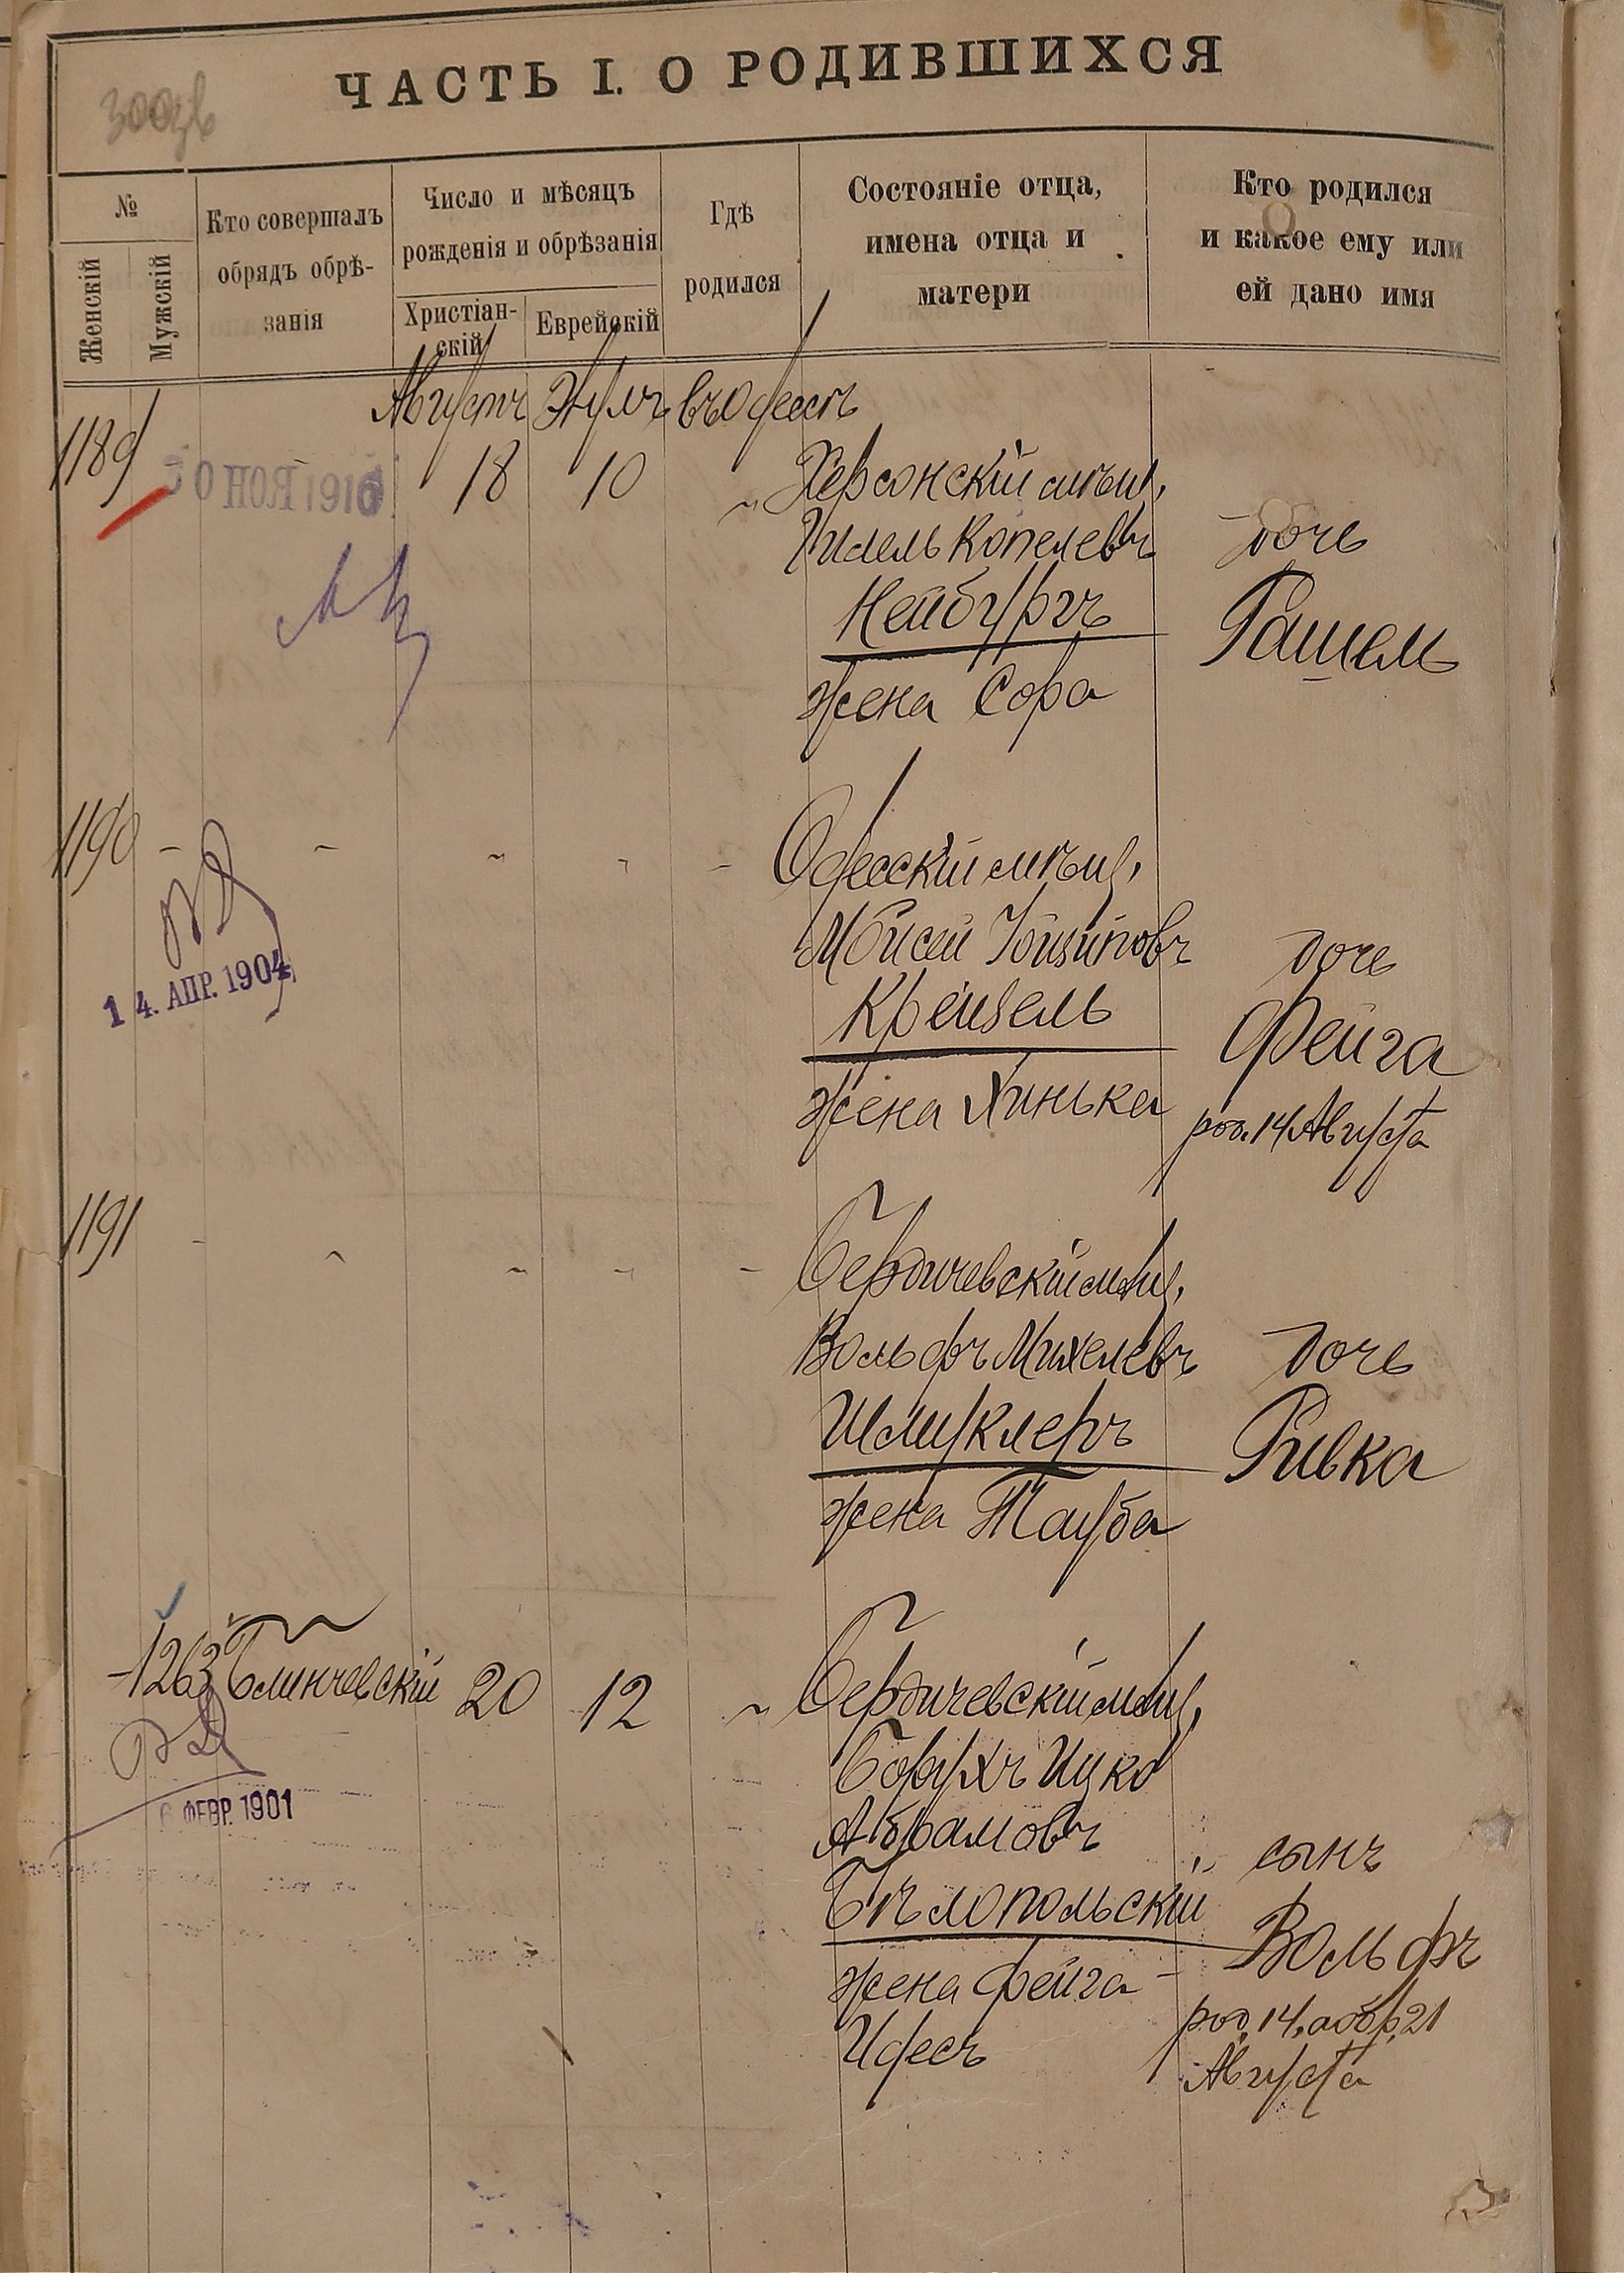 ЧАСТЬ I. О РОДИВШИХСЯ
№
Женскій
Мужскій
Кто совершалъ
обрядъ обрѣ-
занія
Число и мѣсяцъ
рожденія и обрѣзанія
Христіан-
скій
Еврейскій
Гдѣ
родился
Состояніе отца,
имена отца и
матери
Кто родился
и какое ему или
ей дано имя
Августъ Элулъ въ Одессѣ
1189
НОЯ 1916
18 10 Херсонскій мѣщ.
Копелевъ дочь
Нейбургъ Рашель
жена Сора
1190 - - - Одесскій мѣщ.
Мойсей дочь
14. АПР. 1904
Крейзель Фейга
жена Хинька род. 14 Августа
1191 - - Бердичевскій мѣщ.
Вольфъ Михелевъ дочь
Шмуклеръ Ривка
жена Тауба
-1263 Блинчевскій 20 12 Бердичевскій мѣщ.
Борухъ Ицко
ФЕВР. 1901
Абрамовъ сынъ
Бѣлопольскій Вольфъ
жена Фейга - род. 14, обр. 21
Идесъ Августа